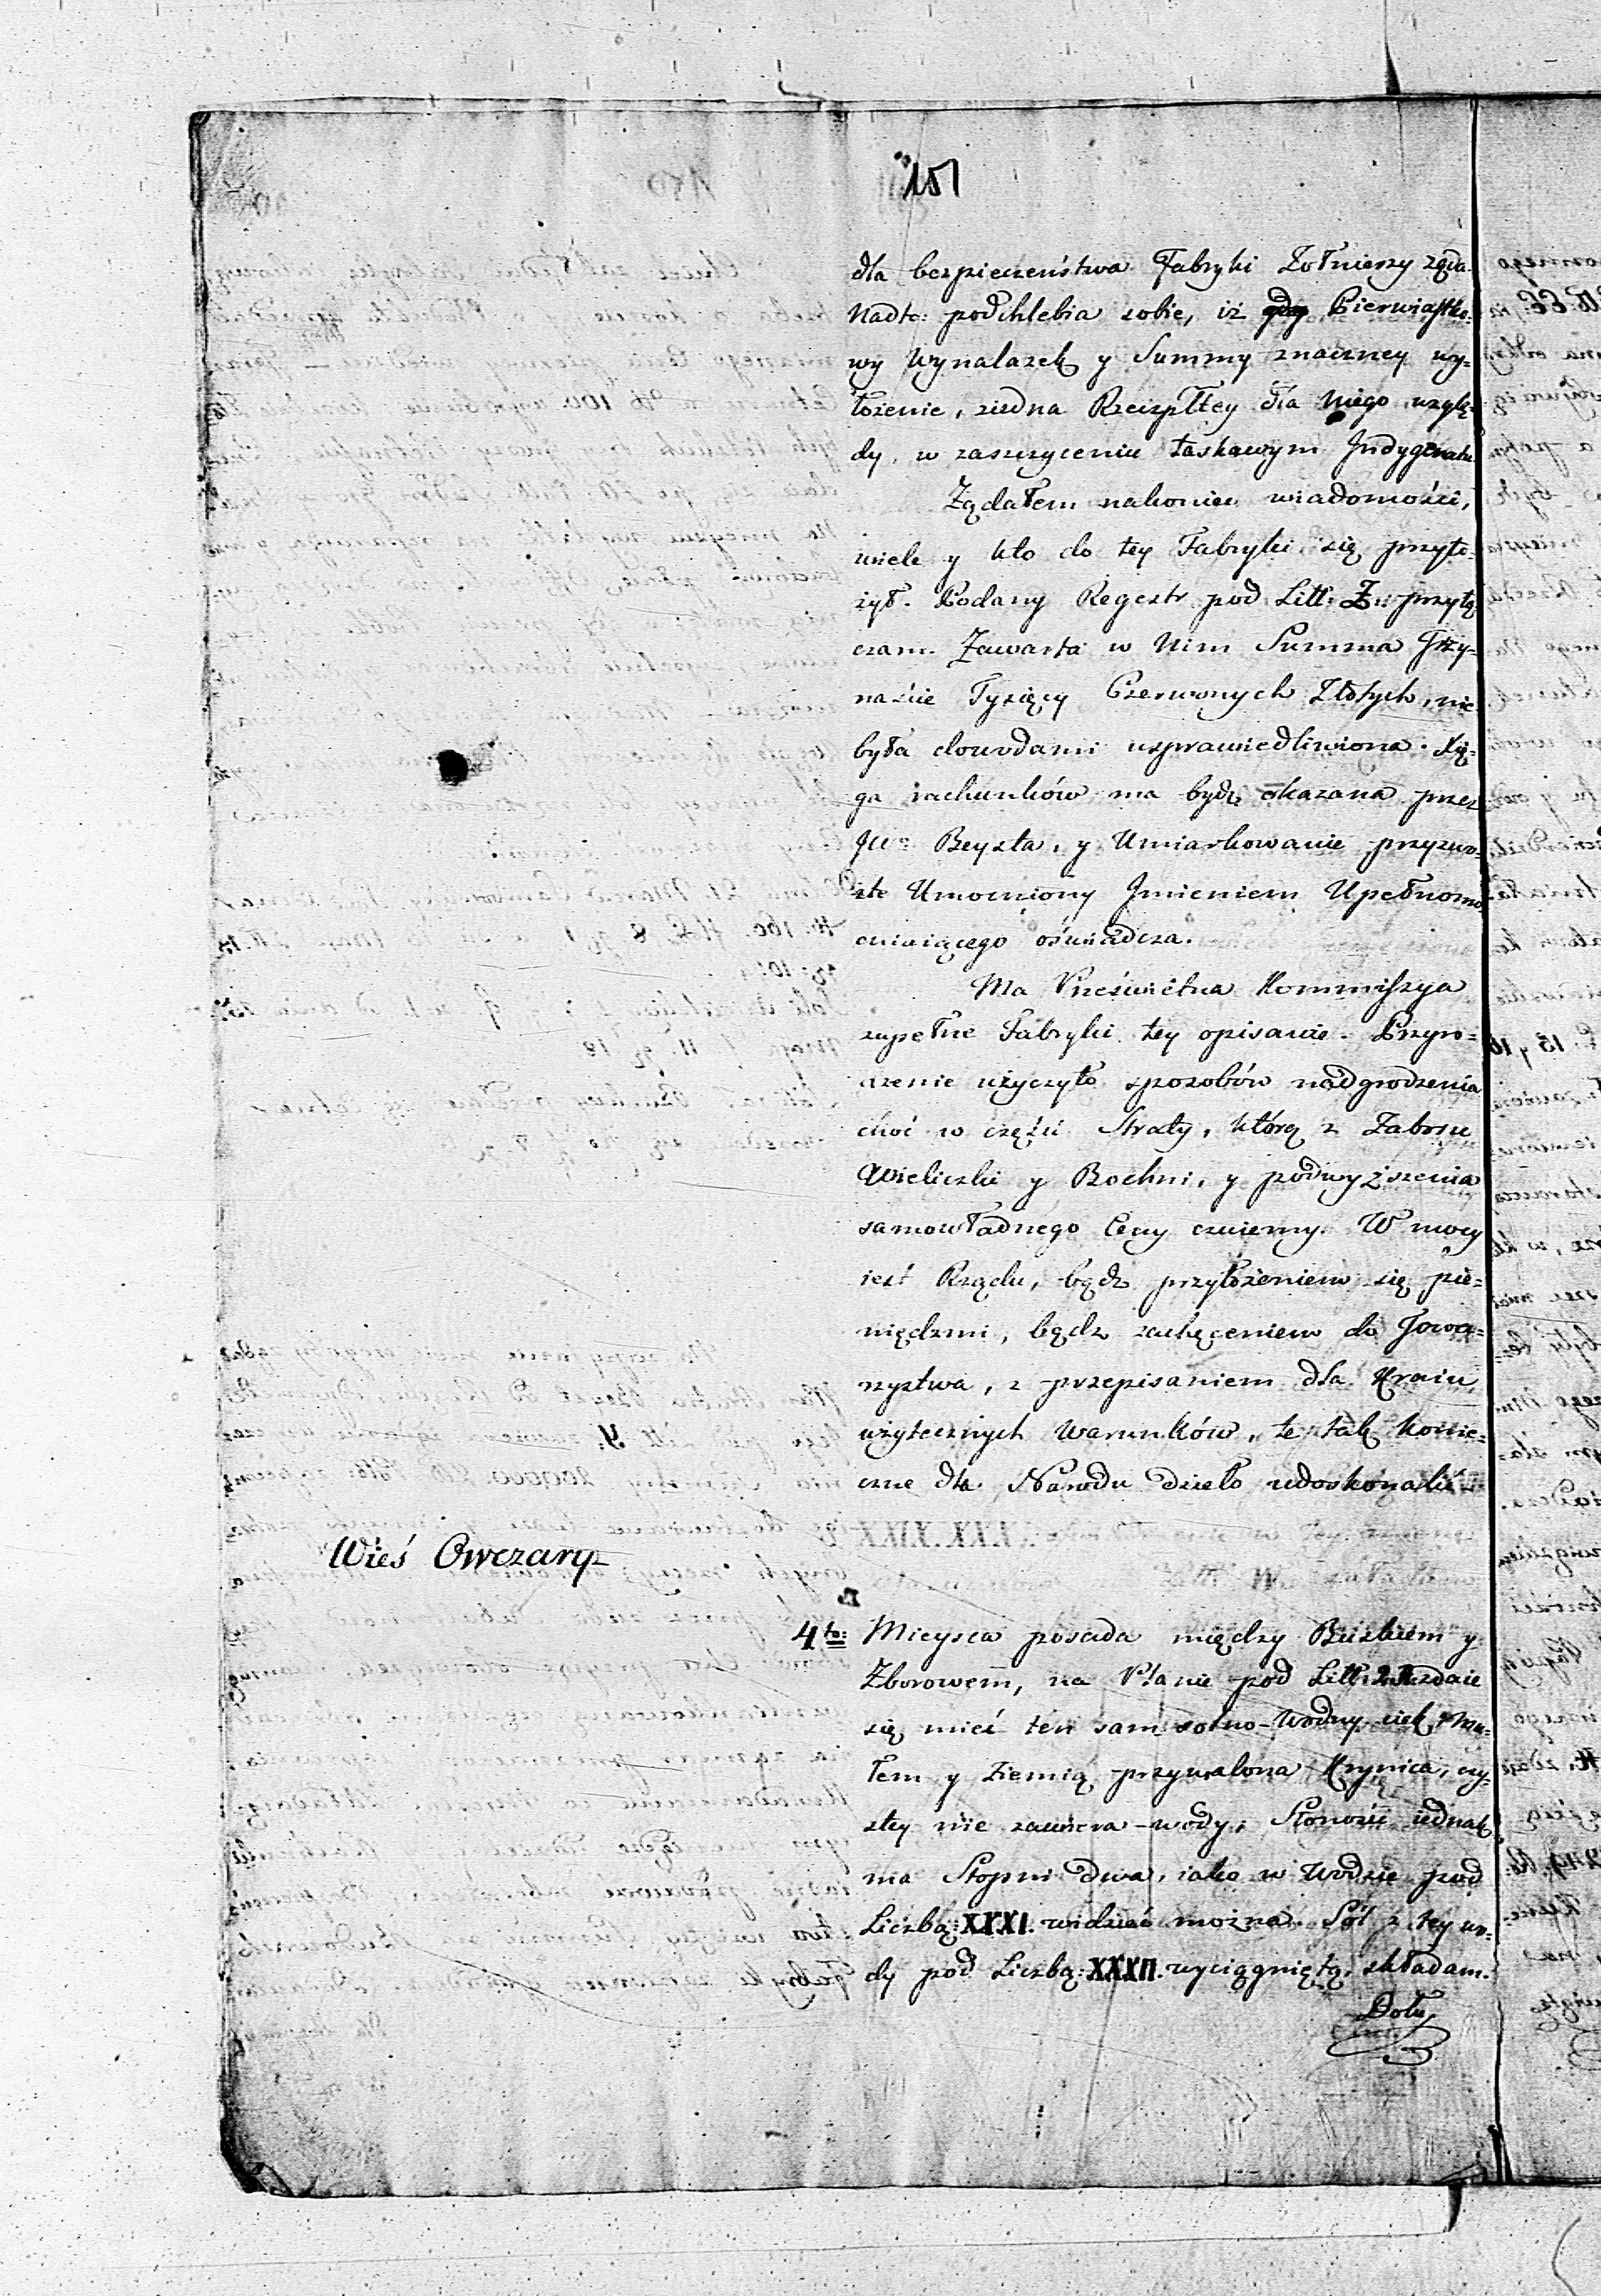 151
dla bezpieczeństwa Fabryki Żołnierzy żąda.
Nadto: podchlebia sobie, iż Pierwiastko-
wy Wynalazek y Summy znaczney wy-
łożenie, ziedna Rzeczpltey dla Niego wzglę-
dy, w zaszczyceniu łaskawym Indygenatu
Żądałem nakoniec wiadomości,
wiele y kto do tey Fabryki się przyło-
żył. Podany Regestr pod Litt: Z: przyłą
czam. Zawarta w Nim Summa Trzy-
naście Tysięcy Czerwonych Złotych, nie
była dowodami usprawiedliwiona. Xię-
ga rachunków ma bydź okazana przez
JW: Beyzta, y Umiarkowanie przyzwo-
ite Umocniony Imieniem Upełnomo
cniaiącego oświadcza.
Ma Prześwietna Kommissya
zupełne Fabryki tey opisanie. Przyro-
dzenie użyczyło sposobów nadgrodzenia
choć w części Straty, którą z Zaboru
Wieliczki y Bochni, y podwyższenia
samowładnego Ceny czuiemy. W mocy
iest Rządu, bądź przyłożeniem się pie-
niędzmi, bądz zachęceniem do Towa-
rzystwa, z przepisaniem dla Kraiu
użytecznych Warunków, te tak konie-
czne dla Narodu dzieło udoskonalić
Wieś Owczary
4to: Mieysca posada między Buskiem y
Zborowem, na Planie pod Litt: zdaie
się mieć ten sam solno-wodny ciek, Mu-
łem y Ziemią przywalona Krynica, czy-
stey nie zawiera wody, Słoności iednak
ma Stopni dwa, iako w Wodzie pod
Liczbą: XXXI. widzieć można. Sól z tey wo-
dy pod Liczbą: XXXII. wyciągniętą, składam.
Dołu